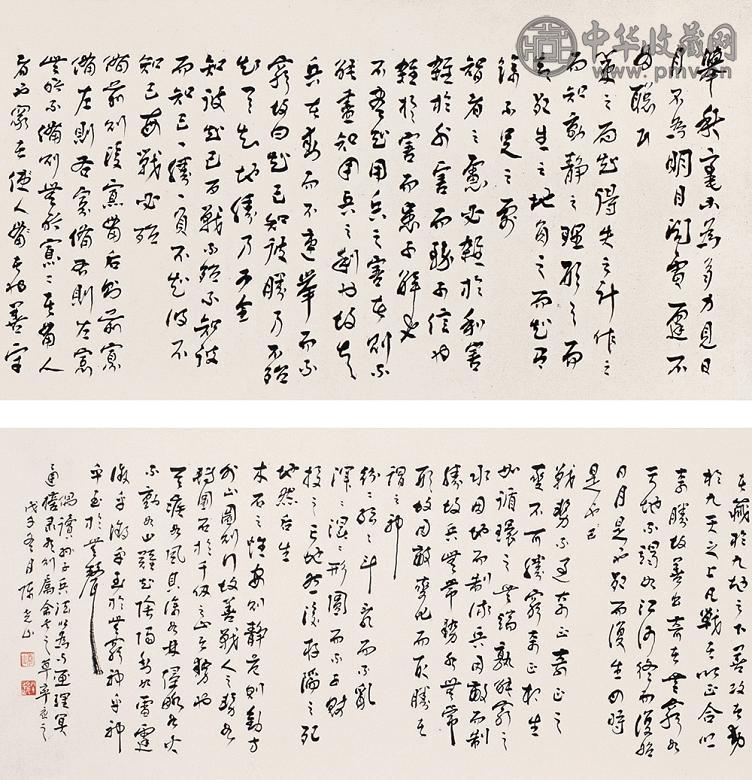 中华收藏网
www.pmv.cn
舉秋毫不為多力見日
月不為明目聞雷霆不
為聰耳
策之而知得失之計作之
而知動靜之理形之而
知死生之地角之而知有
餘不足之處
智者之慮必雜於利害
雜於利而務可信也
雜於害而患可解也
不盡知用兵之害者則不
能盡知用兵之利也故知
兵者動而不迷舉而不
窮故曰知己知彼勝乃不殆
知天知地勝乃可全
知彼知己百戰不殆不知彼
而知己一勝一負不知彼不
知己每戰必殆
備前則後寡備後則前寡
備左則右寡備右則左寡
無所不備則無所不寡寡者備人
者也眾者使人備己者也善守
者藏於九地之下善攻者動
於九天之上凡戰者以正合以
奇勝故善出奇者無窮如
天地不竭如江河終而復始
日月是也死而復生四時
是也
戰勢不過奇正奇正之
變不可勝窮奇正相生
如循環之無端孰能窮之
水因地而制流兵因敵而制
勝故兵無常勢水無常
形故因敵變化而取勝者
謂之神
紛紛紜紜鬥亂而不亂
渾渾沌沌形圓而不可敗
投之亡地然後存陷之死
地然後生
木石之性安則靜危則動方
則止圓則行故善戰人之勢如
轉圓石於千仞之山者勢也
其疾如風其徐如林侵略如火
不動如山難知如陰動如雷霆
微乎微乎至於無形神乎神
乎至於無聲
偶讀孫子兵法以為與書理冥
戊子冬月陳